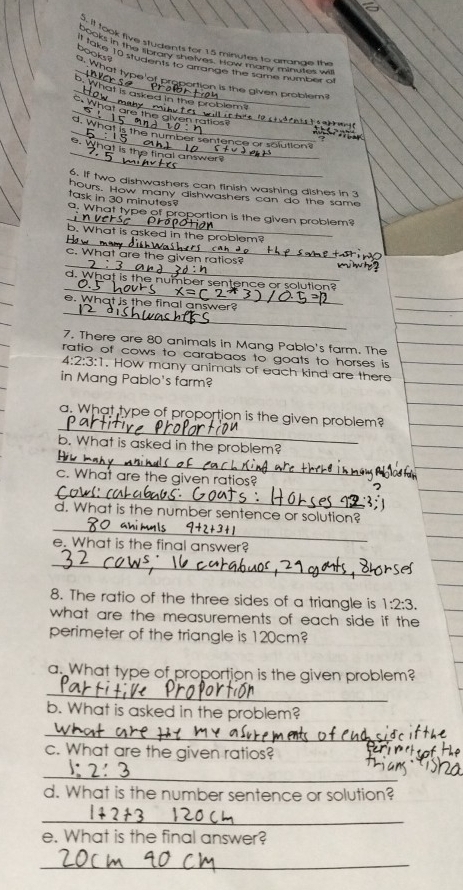 5. It took five students for 15 minutes to arrange the
books in the library shelves. How many minutes will
it take 10 students to arrange the same number of
books?
a. What type of proportion is the given problem?
inverse proportion
b. What is asked in the problem?
How many minutes will it take 10 students to arrange
the same
number of books
?
c. What are the given ratios?
5:15 and 10:n
d. What is the number sentence or solution?
5:15 and 10 students
e. What is the final answer?
7.5 minutes
6. If two dishwashers can finish washing dishes in 3
hours. How many dishwashers can do the same
task in 30 minutes?
a. What type of proportion is the given problem?
inverse propotion
b. What is asked in the problem?
How many dishwashers can do the same task in 30
minute?
c. What are the given ratios?
2:3 and 30:n
d. What is the number sentence or solution?
0.5 hours x=(2*3)/0.5=12
e. What is the final answer?
12 dishwashers
7. There are 80 animals in Mang Pablo's farm. The
ratio of cows to carabaos to goats to horses is
4:2:3:1. How many animals of each kind are there
in Mang Pablo's farm?
a. What type of proportion is the given problem?
partitive proportion
b. What is asked in the problem?
How many animals of each kind are there in mang Pablos farm
?
c. What are the given ratios?
Cows: carabaos: Goats: Horses
d. What is the number sentence or solution?
80 animals 4+2+3+1
e. What is the final answer?
32 cows; 16 carabaos, 24 goats, 8 horses
8. The ratio of the three sides of a triangle is 1:2:3.
what are the measurements of each side if the
perimeter of the triangle is 120cm?
a. What type of proportion is the given problem?
Partitive Proportion
b. What is asked in the problem?
what are the measurements of each side if the
perimeter of the
c. What are the given ratios?
1:2:3
d. What is the number sentence or solution?
1+2+3 120 cm
e. What is the final answer?
20cm 40 cm